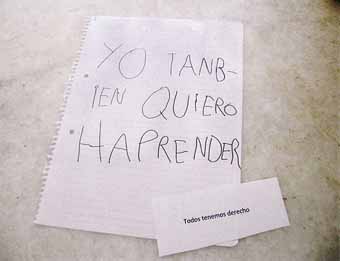 YO TANB-
IEN QUIERO
HAPRENDER
Todos tenemos derecho